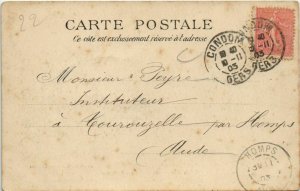 22
CARTE POSTALE
Ce côté est exclusivement réservé à l'adresse
CONDOM
GERS
CONDOM
GERS
Monsieur Peyre
Instituteur
à Tourouzelle par Homps
Aude
HOMPS